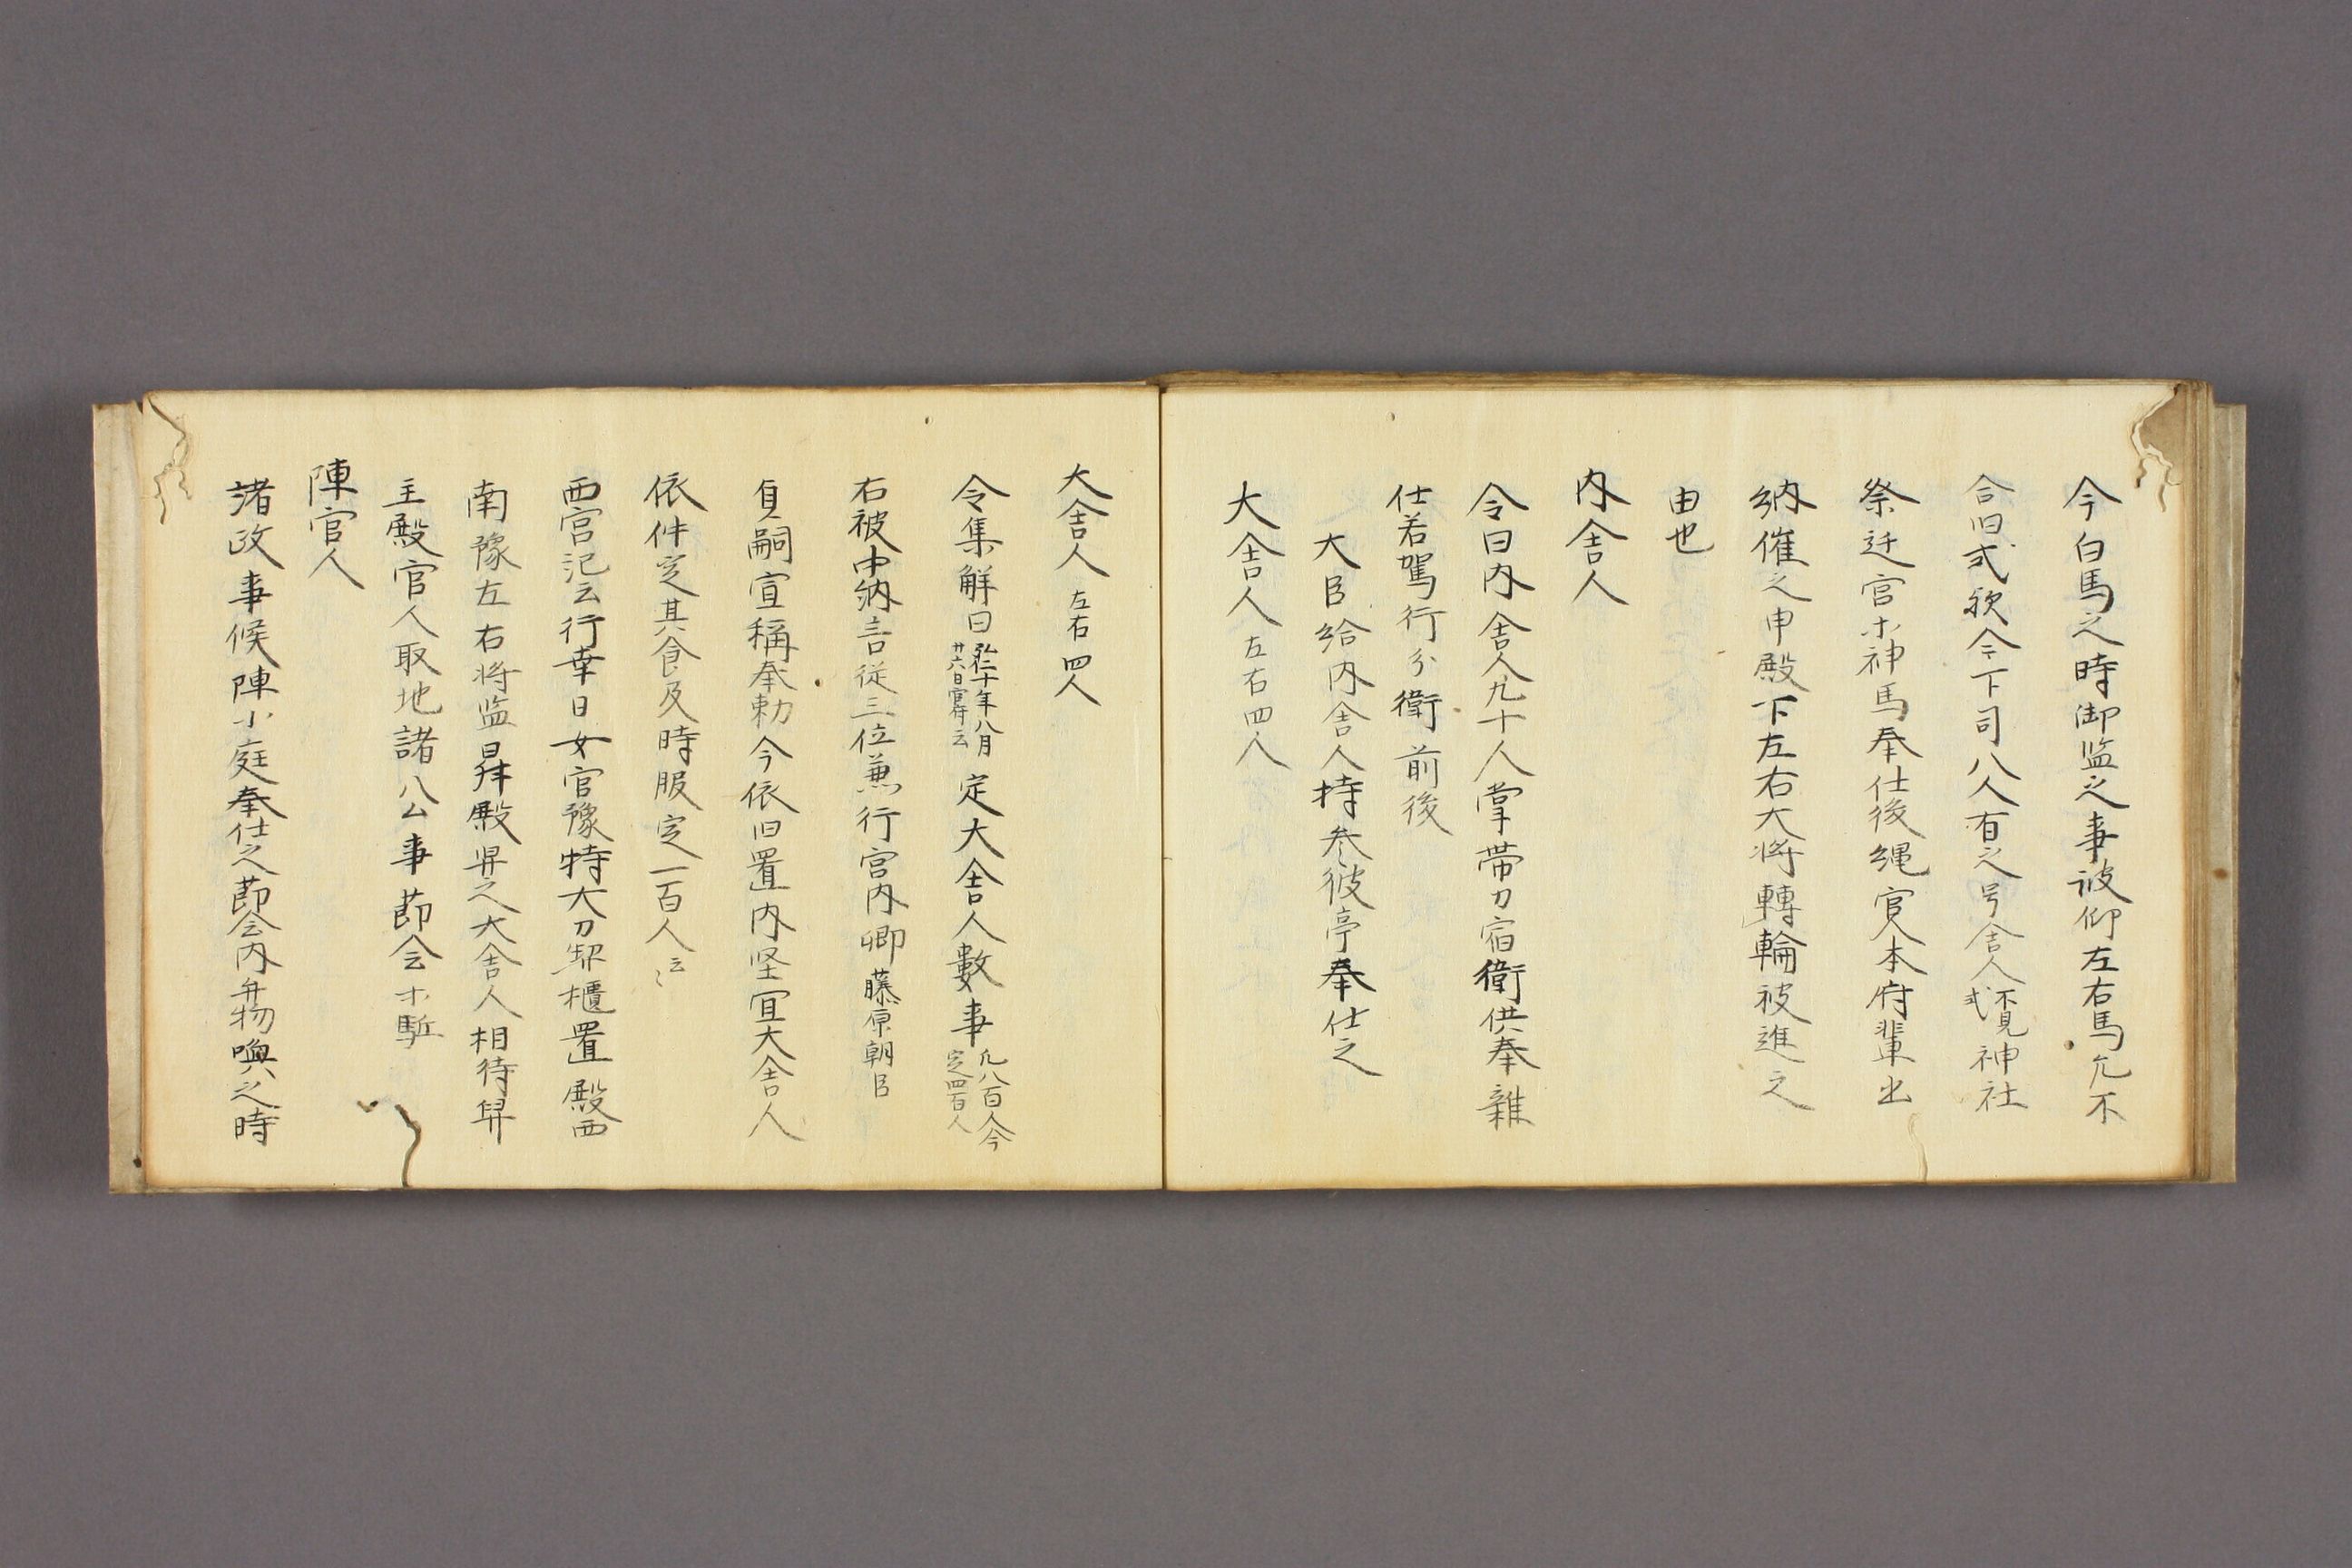 今白馬之時御监之事被仰左右馬允不
合旧式欤今下司八人有之号舎人不見式神社
祭迁宮ホ神馬奉仕後縄官人本府輩出
納催之申殿下左右大将轉輪被進之
由也
内舎人
令曰内舎人九十人掌帯刀宿衛供奉雜
仕若駕行分衛前後
大臣給内舎人持参彼亭奉仕之
大舎人左右四人
大舎人左右四人
令集解曰弘仁十年八月廿六日官符云定大舎人數事元八百人今定四百人
右被中納言従三位兼行宮内卿藤原朝臣
貞嗣宣稱奉勅今依旧置内竪宜大舎人
依件定其食及時服定一百人云〻
西宮记云行幸日女官豫持大刀契櫃置殿西
南豫左右将监昇殿舁之大舎人相待舁
主殿官人取地諸公事莭会ホ駈
陣官人
諸政事候陣小庭奉仕之莭会内弁物喚之時